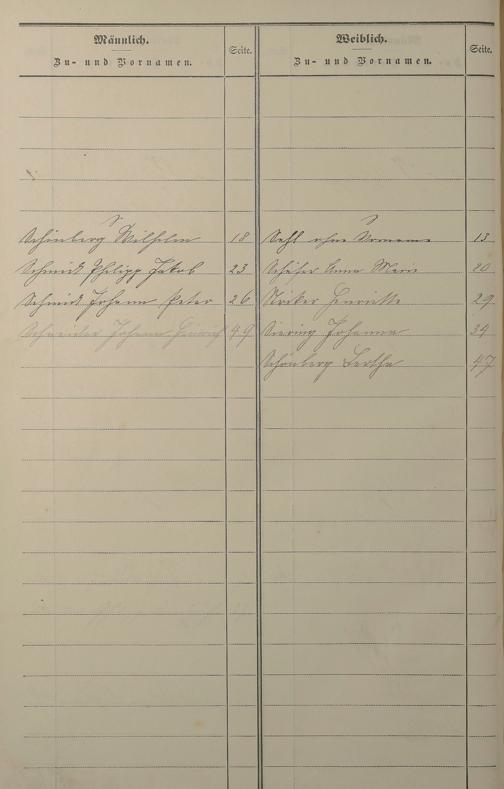 Männlich.
Zu- und Vornamen.
Seite.
Weiblich.
Zu- und Vornamen.
Seite.
S
Schönberg Wilhelm 18
Schmidt Philipp Jakob 23
Schmidt Johann Peter 26
Schneider Johann Heinrich 49
S
Sehl ohne Vorname 13
Schäfer Anna Marie 20
Henriette 29
Siering Johanna 34
Schönberg Bertha 47